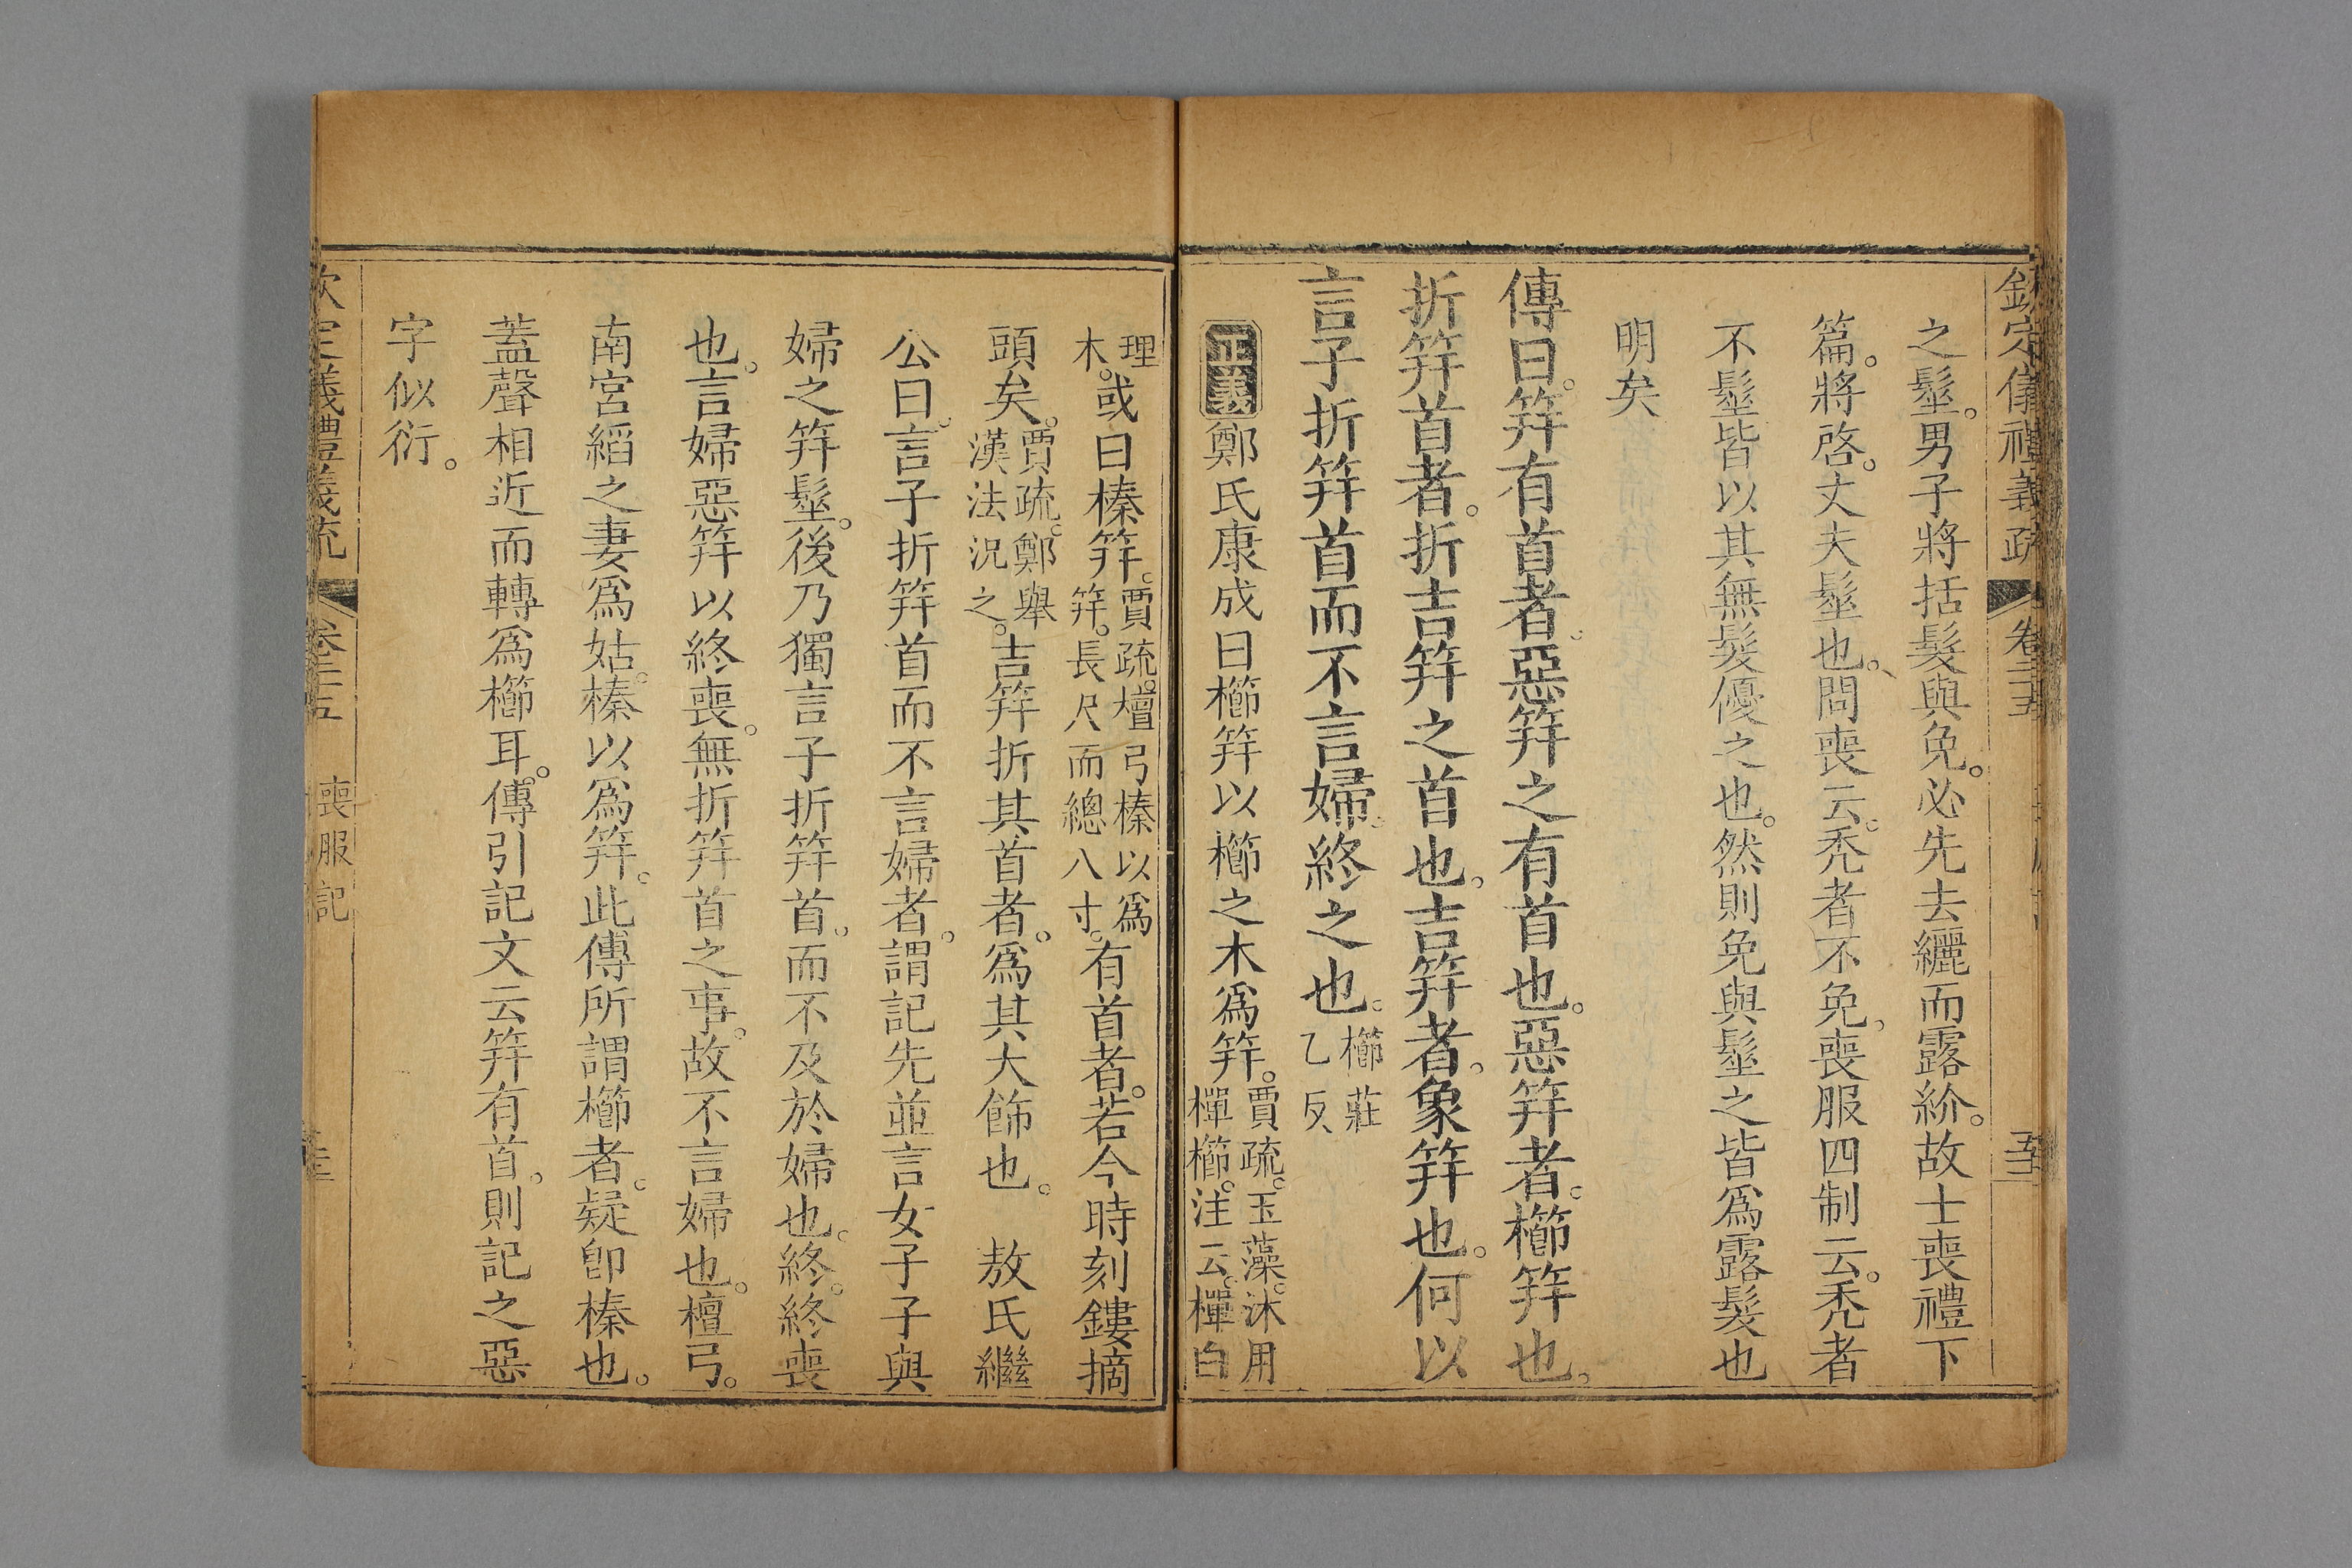 欽定儀禮義疏 卷二十五 五十二
之髽。男子將括髮與免。必先去纚而露紒。故士喪禮下
篇。將啓。丈夫髽也。問喪云。禿者不免。喪服四制云。禿者
不髽。皆以其無髮優之也。然則免與髽之皆爲露髮也
明矣
傳曰。笄有首者。惡笄之有首也。惡笄者。櫛笄也。
折笄首者。折吉笄之首也。吉笄者。象笄也。何以
言子折笄首而不言婦。終之也。櫛莊乙反
正義 鄭氏康成曰櫛笄以櫛之木爲笄。賈疏。玉藻。沐用樿櫛。注云。樿白
理木。或曰榛笄。賈疏。檀弓榛以爲笄。長尺而總八寸。有首者。若今時刻鏤摘
頭矣。賈疏。鄭舉漢法況之。吉笄折其首者。爲其大飾也。 敖氏繼
公曰。言子折笄首而不言婦者。謂記先並言女子子與
婦之笄髽。後乃獨言子折笄首。而不及於婦也。終。終喪
也。言婦惡笄以終喪。無折笄首之事。故不言婦也。檀弓。
南宮縚之妻爲姑。榛以爲笄。此傳所謂櫛者。疑卽榛也。
蓋聲相近而轉爲櫛耳。傳引記文云笄有首。則記之惡
字似衍。
欽定儀禮義疏 卷二十五 喪服記